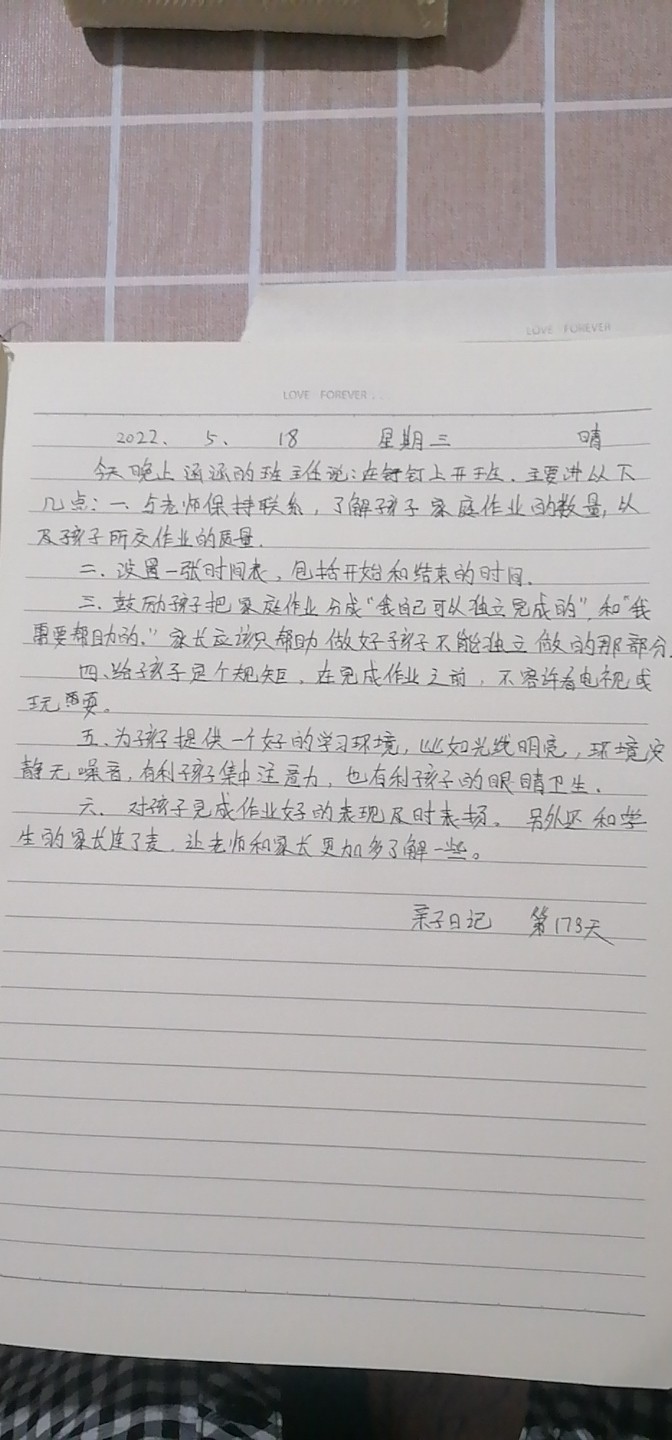 LOVE FOREVER
LOVE FOREVER...
2022、 5、 18 星期三 晴
今天晚上涵涵的班主任说:在钉钉上开班.主要讲以下
几点:一.与老师保持联系,了解孩子家庭作业的数量,以
及孩子所交作业的质量.
二.设置一张时间表,包括开始和结束的时间.
三.鼓励孩子把家庭作业分成“我自己可以独立完成的”和“我
需要帮助的.”家长应该只帮助做好孩子不能独立做的那部分.
四、给孩子定个规矩,在完成作业之前,不容许看电视或
玩耍。
五.为孩子提供一个好的学习环境,比如光线明亮,环境安
静无噪音,有利孩子集中注意力,也有利孩子的眼睛卫生.
六. 对孩子完成作业好的表现及时表扬。另外还和学
生的家长连了麦.让老师和家长更加多了解一些。
亲子日记 第173天